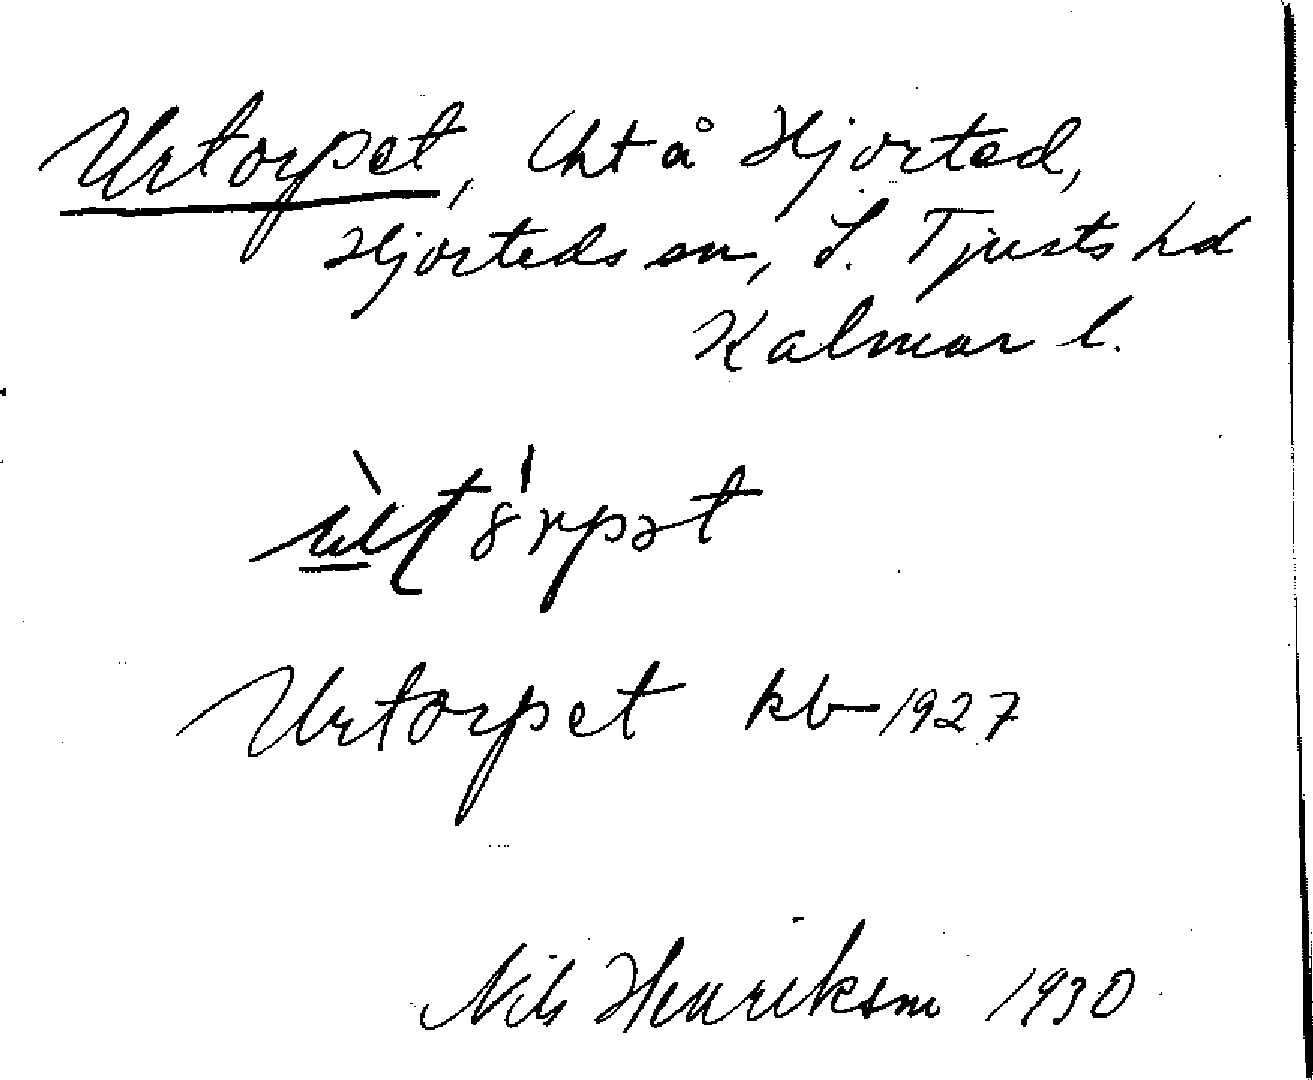 Urtorpet, lht å Hjorted,
Hjorteds sn, S. Tjusts hd
Kalmar l.
Urtorpet kb 1927
Nils Henrikson 1930